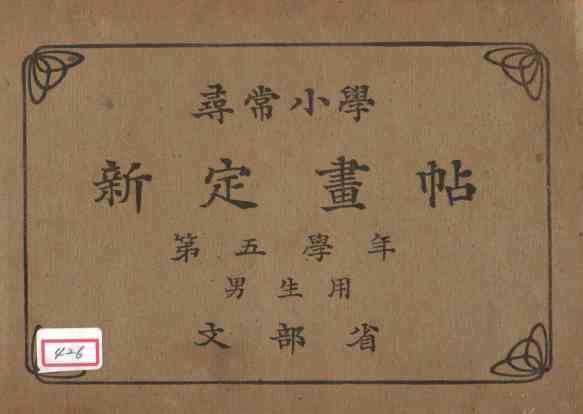 尋常小學
新定畫帖
第五學年
男生用
文部省
426